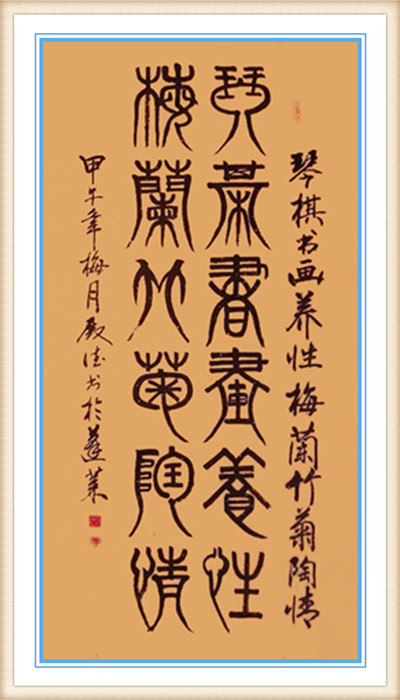 琴棋书画养性梅兰竹菊陶情
琴棋書畫養性
梅蘭竹菊陶情
甲午年梅月殿佳书於蓬莱